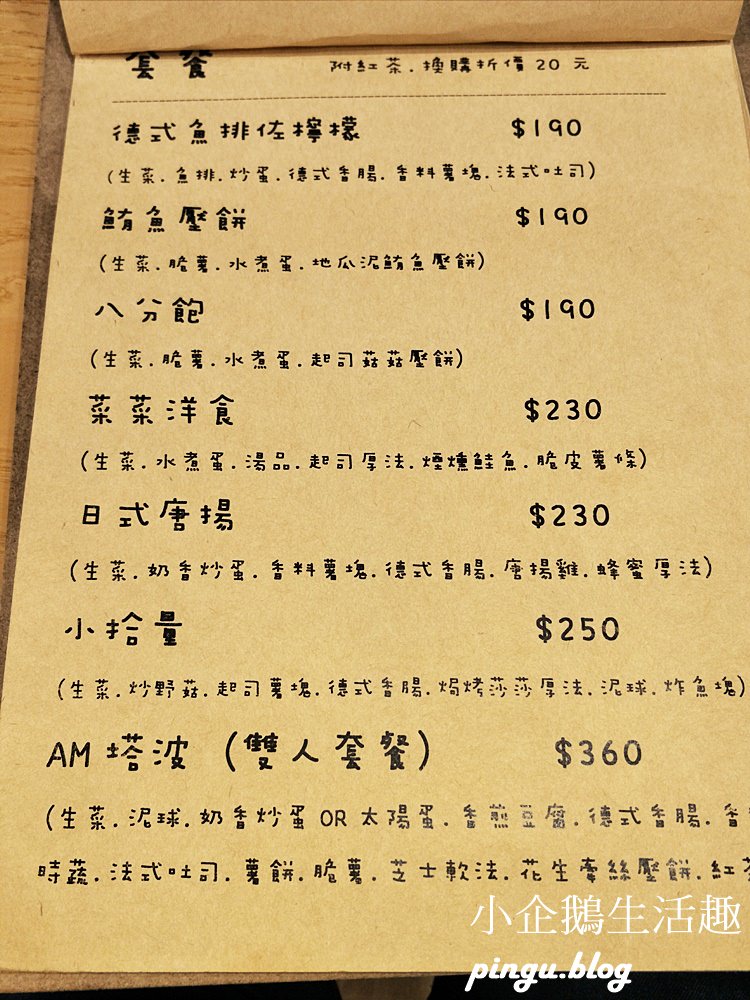 套餐 附紅茶.換購折價20元
德式魚排佐檸檬 $190
(生菜.魚排.炒蛋.德式香腸.香料薯塊.法式吐司)
鮪魚壓餅 $190
(生菜.脆薯.水煮蛋.地瓜泥鮪魚壓餅)
八分飽 $190
(生菜.脆薯.水煮蛋.起司菇菇壓餅)
菜菜洋食 $230
(生菜.水煮蛋.湯品.起司厚法.煙燻鮭魚.脆皮薯條)
日式唐揚 $230
(生菜.奶香炒蛋.香料薯塊.德式香腸.唐揚雞.蜂蜜厚法)
小拾量 $250
(生菜.炒野菇.起司薯塊.德式香腸.焗烤莎莎厚法.泥球.炸魚塊)
AM塔波(雙人套餐) $360
(生菜.泥球.奶香炒蛋OR太陽蛋.香煎豆腐.德式香腸.香
時蔬.法式吐司.薯餅.脆薯.芝士軟法.花生牽絲壓餅.紅茶
小企鵝生活趣
pingu.blog